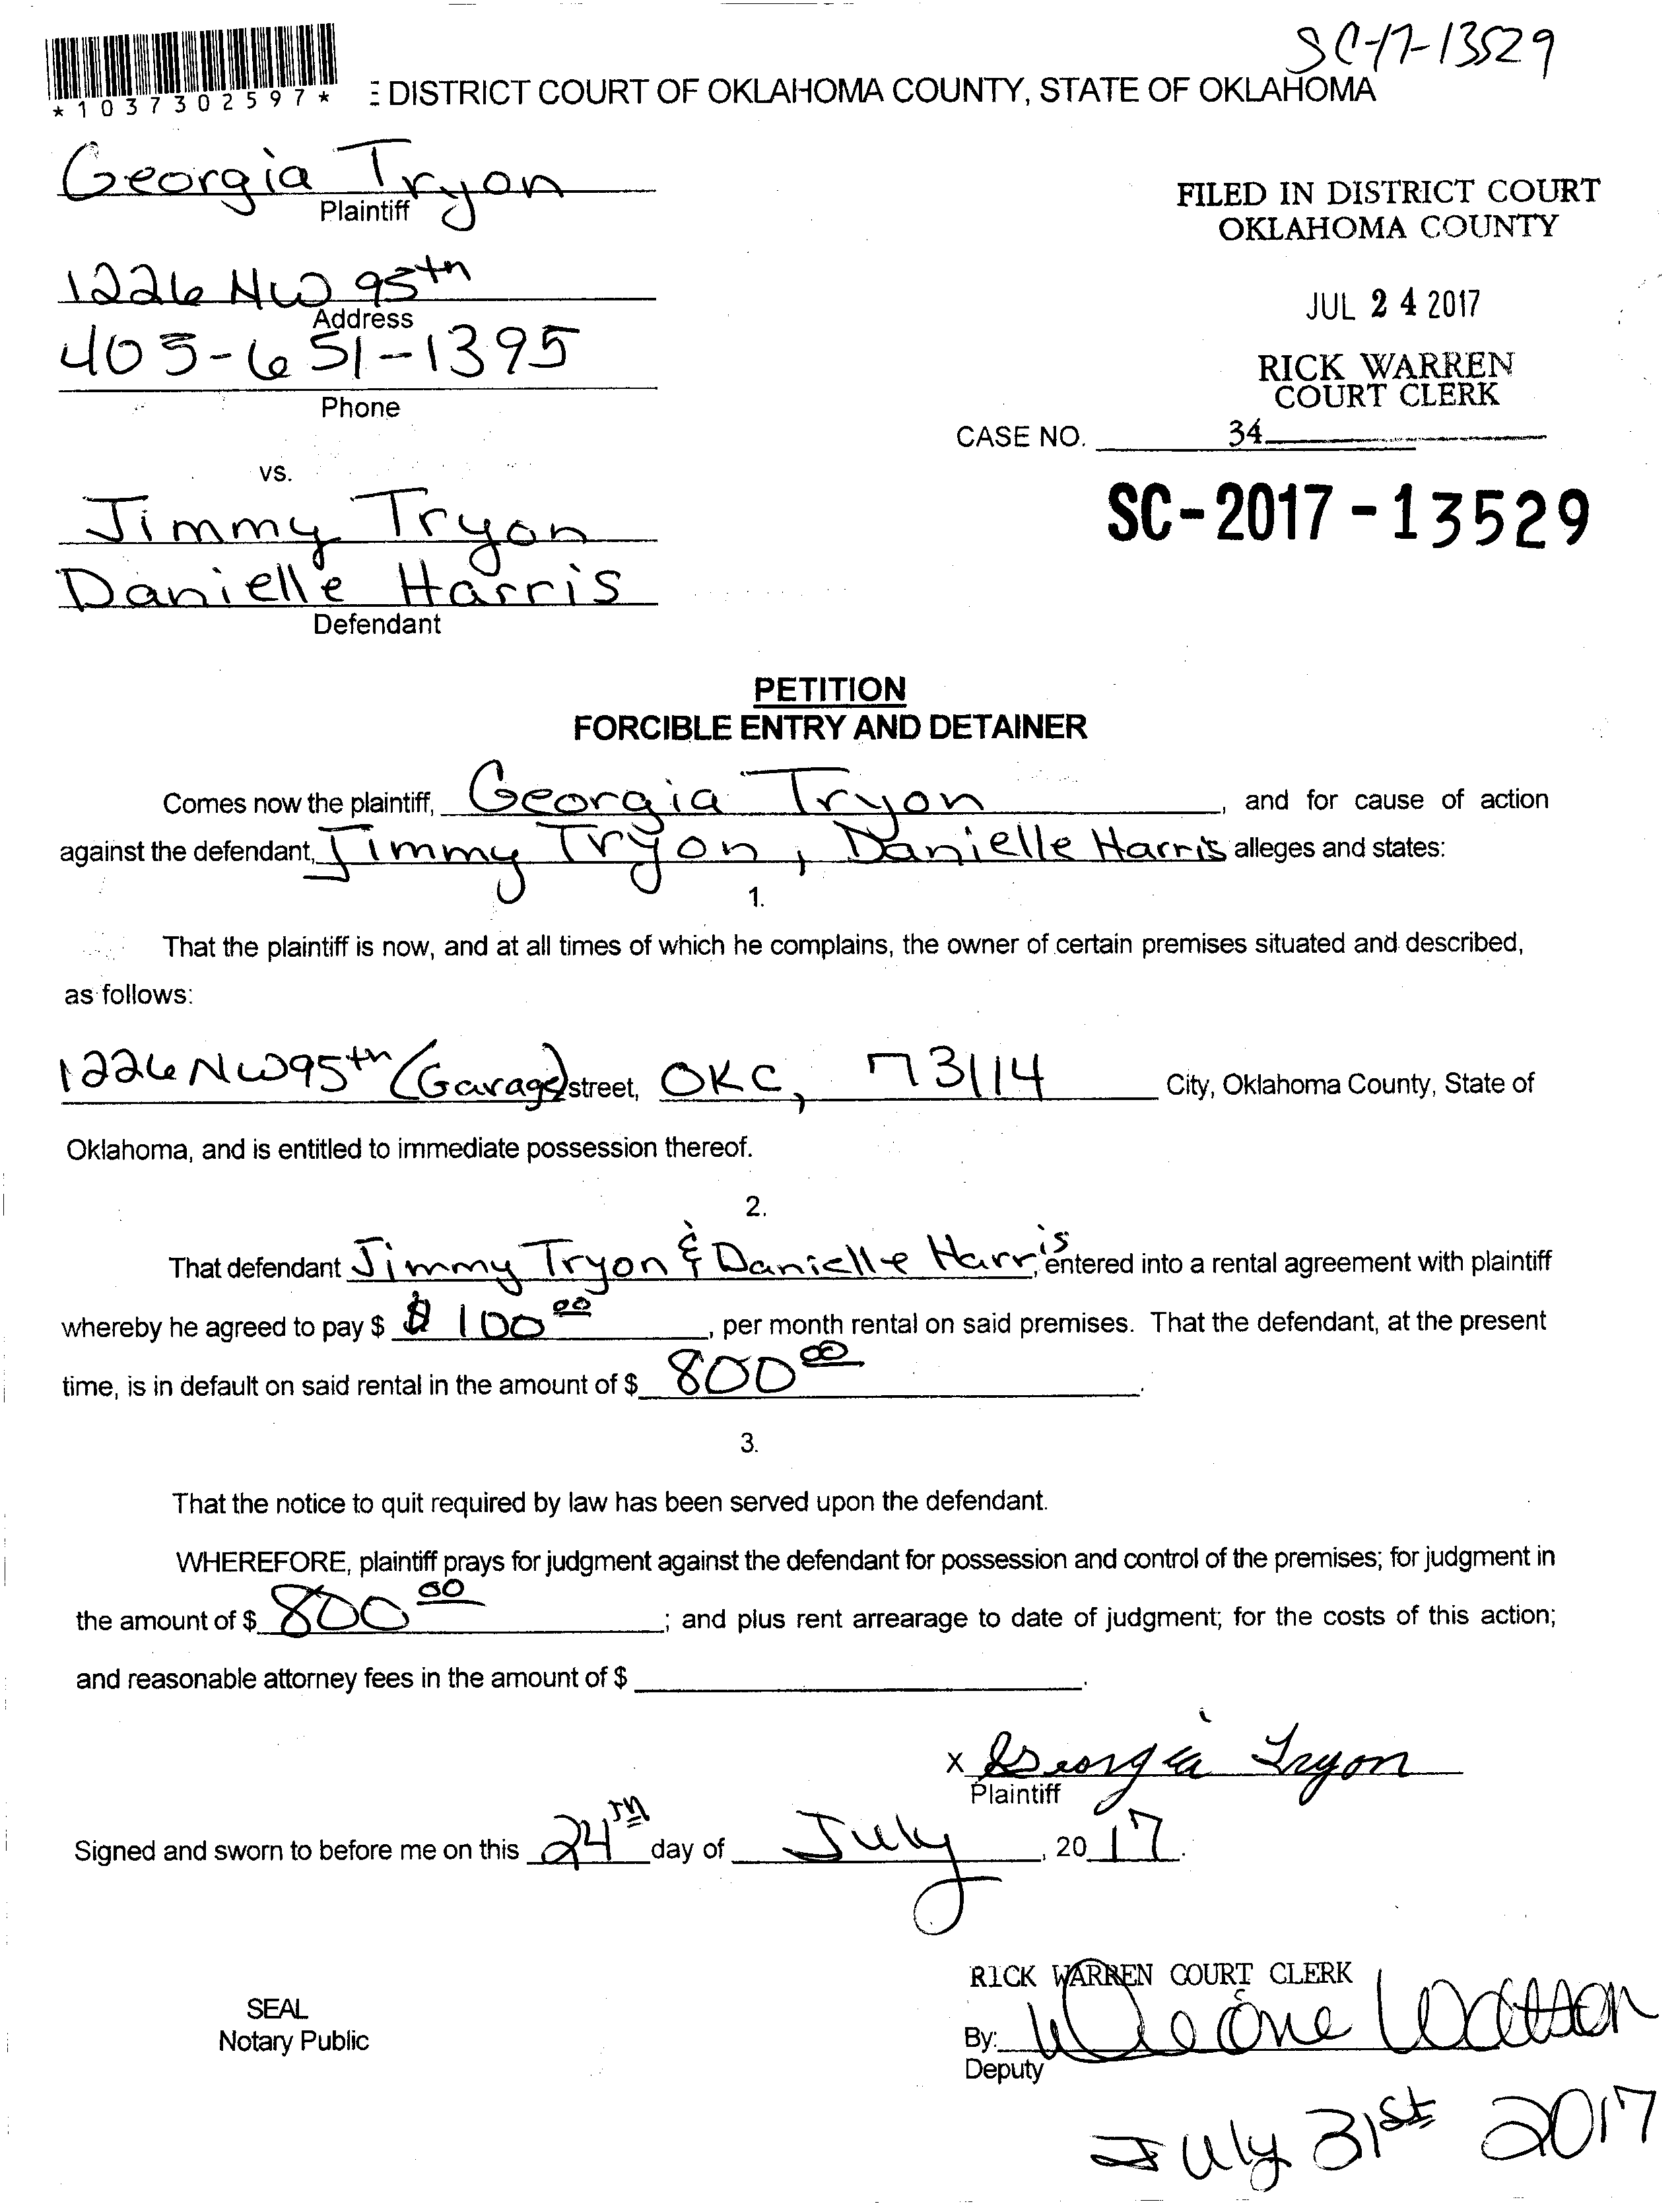 SC-17-13529
*1037302597*
DISTRICT COURT OF OKLAHOMA COUNTY, STATE OF OKLAHOMA
Georgia Tryon
Plaintiff
FILED IN DISTRICT COURT
OKLAHOMA COUNTY
1226 NW 95th
Address
JUL 24 2017
405-651-1395
Phone
RICK WARREN
COURT CLERK
CASE NO. 34
vs.
SC-2017-13529
Jimmy Tryon
Danielle Harris
Defendant
PETITION
FORCIBLE ENTRY AND DETAINER
Comes now the plaintiff, Georgia Tryon, and for cause of action
against the defendant, Jimmy Tryon, Danielle Harris alleges and states:
1.
That the plaintiff is now, and at all times of which he complains, the owner of certain premises situated and described,
as follows:
1226 NW 95th (Garage) street, OKC, 73114 City, Oklahoma County, State of
Oklahoma, and is entitled to immediate possession thereof.
2.
That defendant Jimmy Tryon & Danielle Harris, entered into a rental agreement with plaintiff
whereby he agreed to pay $ $ 100 00, per month rental on said premises. That the defendant, at the present
time, is in default on said rental in the amount of $ 800 00.
3.
That the notice to quit required by law has been served upon the defendant.
WHEREFORE, plaintiff prays for judgment against the defendant for possession and control of the premises; for judgment in
the amount of $ 800 00; and plus rent arrearage to date of judgment; for the costs of this action;
and reasonable attorney fees in the amount of $ .
x Georgia Tryon
Plaintiff
Signed and sworn to before me on this 24TH day of July, 2017.
RICK WARREN COURT CLERK
SEAL
Notary Public
By: Watson
Deputy
July 31st 2017